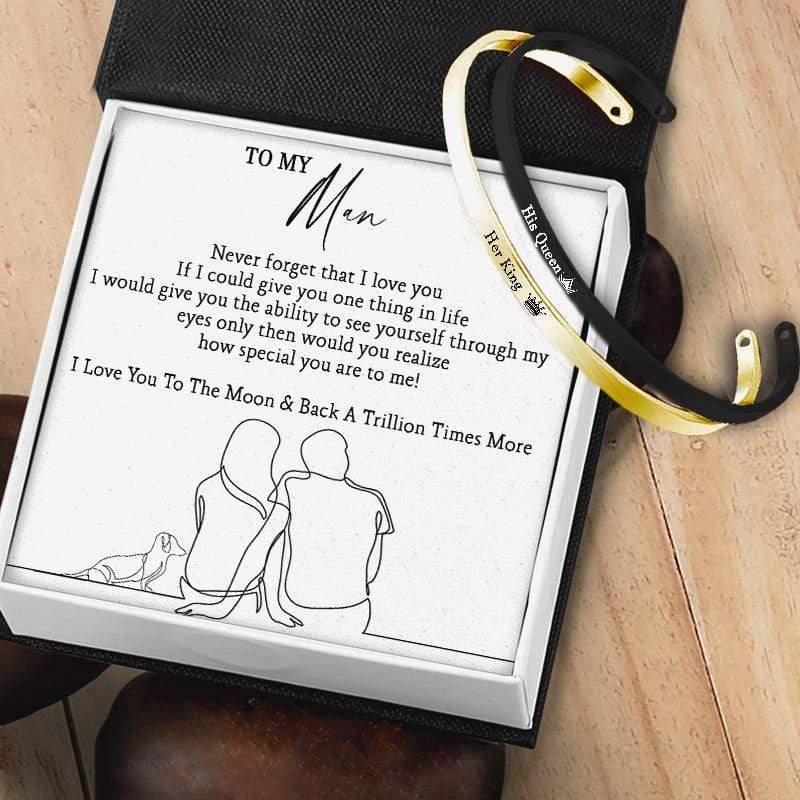 TO MY
Man
Never forget that I love you
If I could give you one thing in life
I would give you the ability to see yourself through my
eyes only then would you realize
how special you are to me!
I Love You To The Moon & Back A Trillion Times More
His Queen
Her King